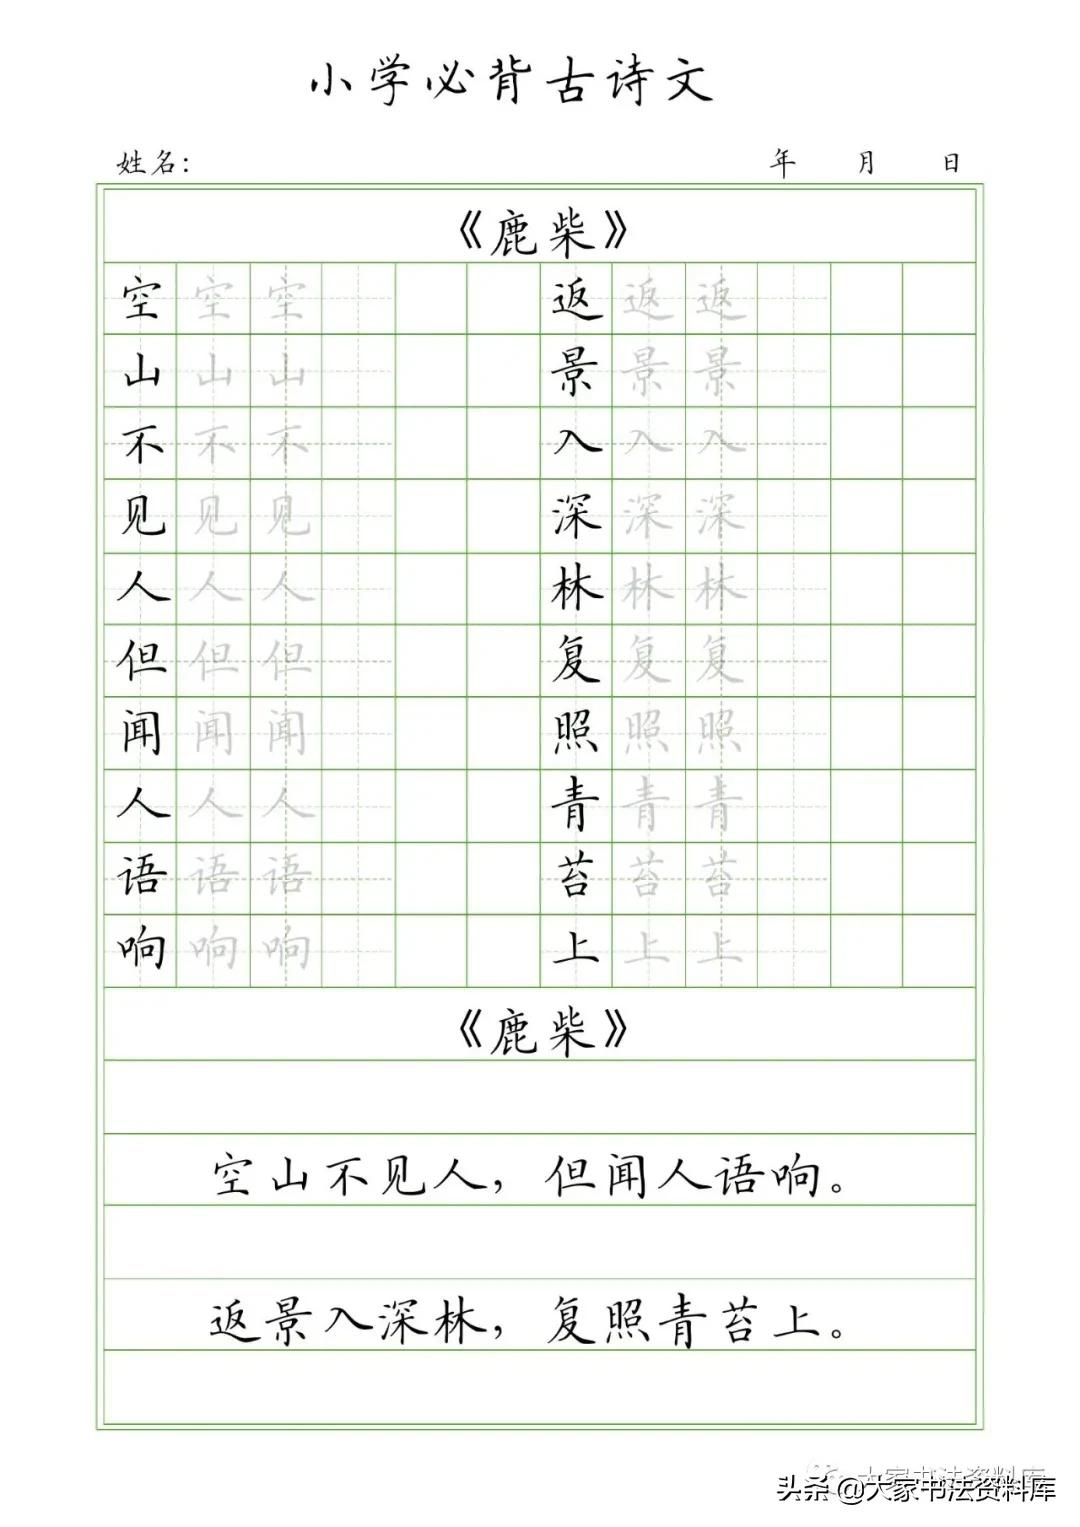 小学必背古诗文
姓名: 年 月 日
《鹿柴》
空 空 空 返 返 返
山 山 山 景 景 景
不 不 不 入 入 入
见 见 见 深 深 深
人 人 人 林 林 林
但 但 但 复 复 复
闻 闻 闻 照 照 照
人 人 人 青 青 青
语 语 语 苔 苔 苔
响 响 响 上 上 上
《鹿柴》
空山不见人，但闻人语响。
返景入深林，复照青苔上。
大家书法资料库
头条 @大家书法资料库